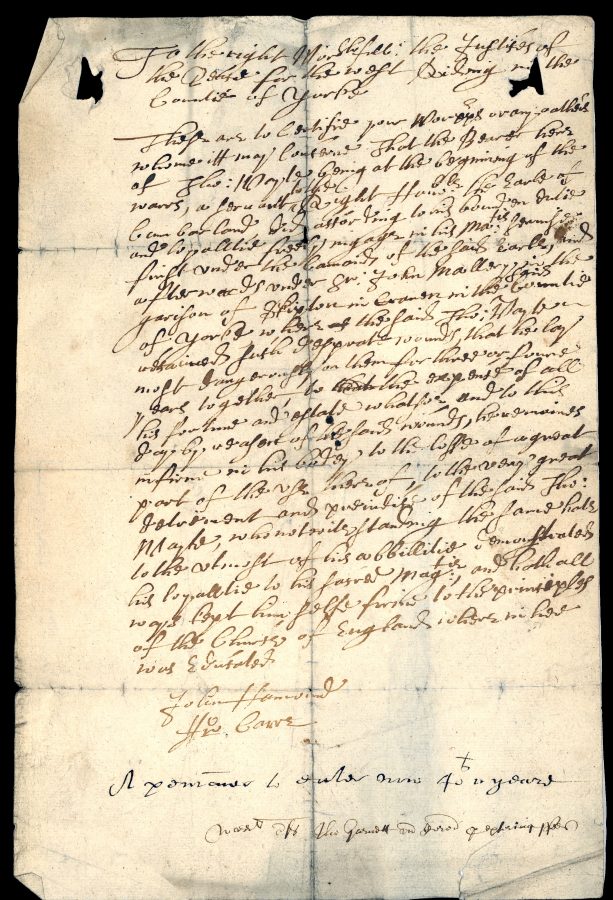 To the right Worshefull: the Justises of
the Peace for the west Rideng in the
Countie of Yorke
These are to Certifie your Worpps or any others
whome itt may Conserne That the Bearer here
of Tho: Mayle being at the begining of the
warrs, a servant to the Right Hoble: the Earle of
Cumberland did according to his bounden dutie
and loyalltie freely ingage in his Maties: servise
first under the Comand of the said Earle, and
afterwards under Sr. John Mallery, in the
garison of Skipton in Craven in the said Countie
of Yorke where as the said Tho: Mayle
retained such desperate wounds, that he lay
most dangerously on them for three or foure
years together, to the expense of all
his fortune and estate whatsoer and to this
day by reason of the said wounds, he remaines
infirme in his body, to the losse of a great
part of the use thereof, to the very great
detriment and prejudice of the said Tho:
Mayle, who notwithstanding the same hath
to the utmost of his abbillitie demonstrated
his loyalltie to his sacred Matie: and hath all
ways kept him selfe firme to the prinsiples
of the Church of England wherein hee
was Educated
John Hamond
Ffr: Carre
A pentioner to enter now 40s p yeare
Tho Garnett